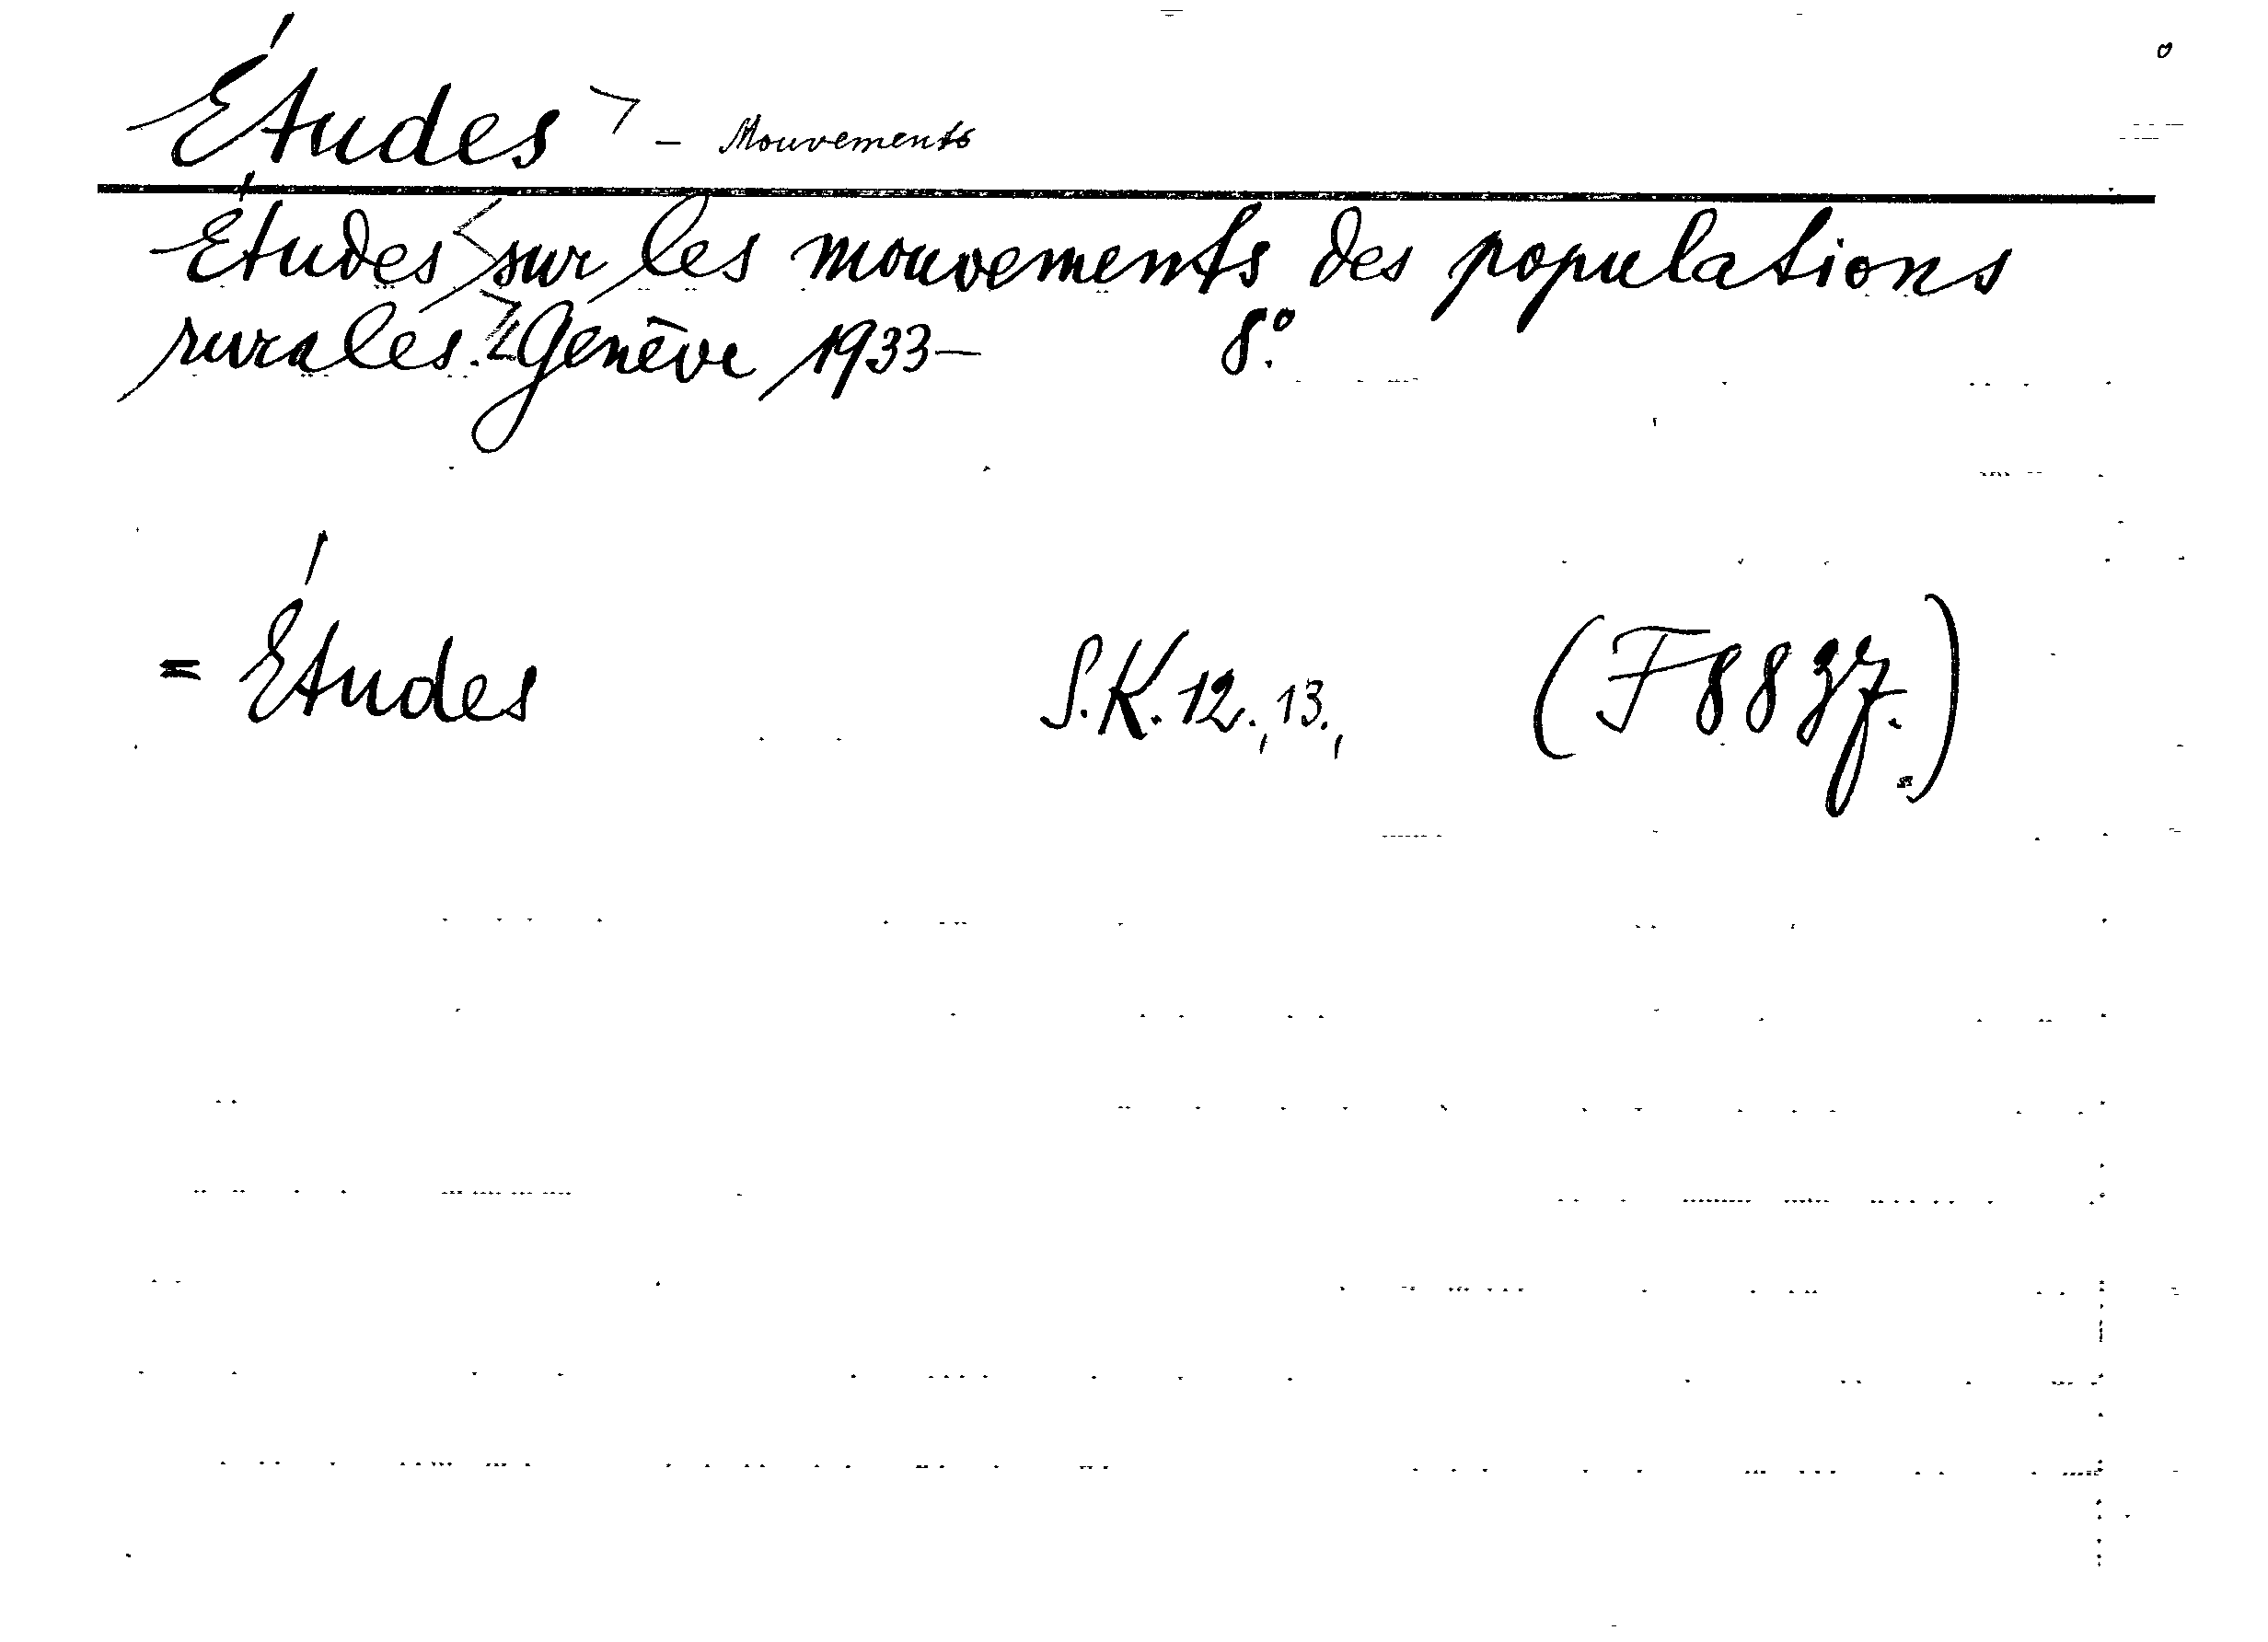 Études – Mouvements
Études sur les mouvements des populations
rurales. Genève 1933– 8°.
= Études S.K.12., 13., (F8897.)